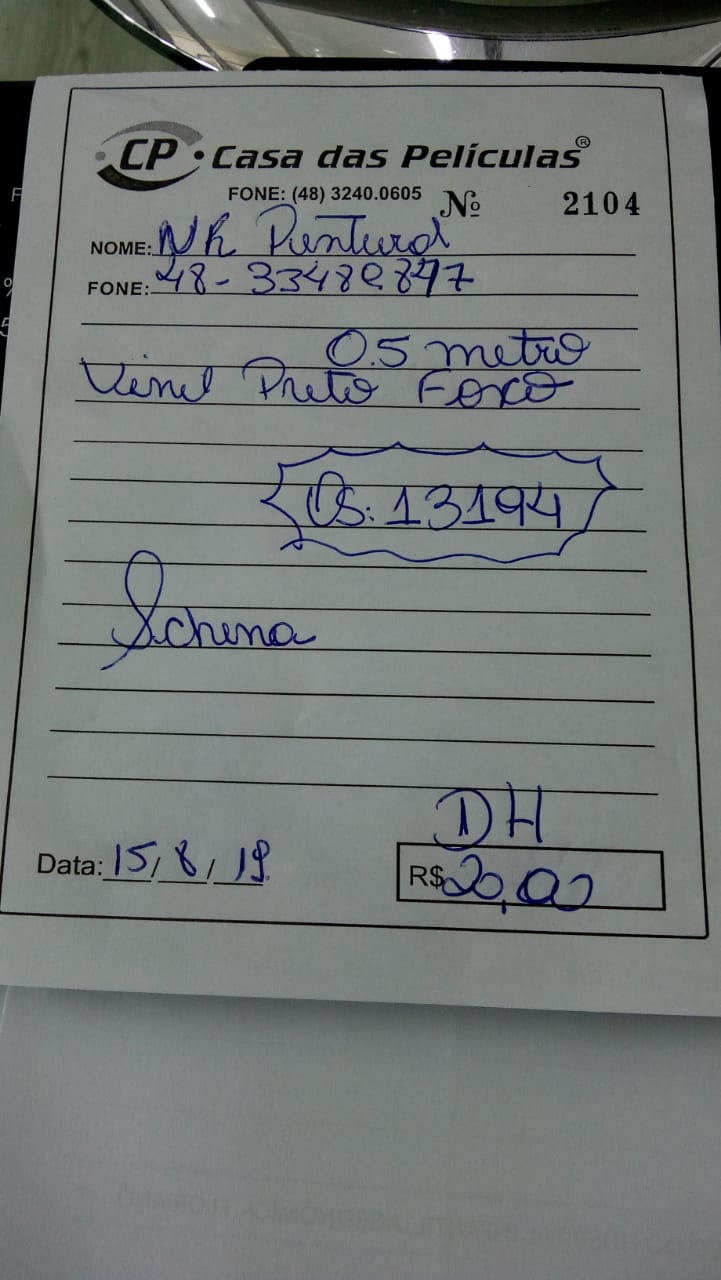 CP • Casa das Películas®
FONE: (48) 3240.0605 Nº 2104
NOME: NR Pintura
FONE: 48-
0.5 metro
Vinil Preto Foxo
OS: 13194
Schena
DH
Data: 15/8/19
R$ 20,00